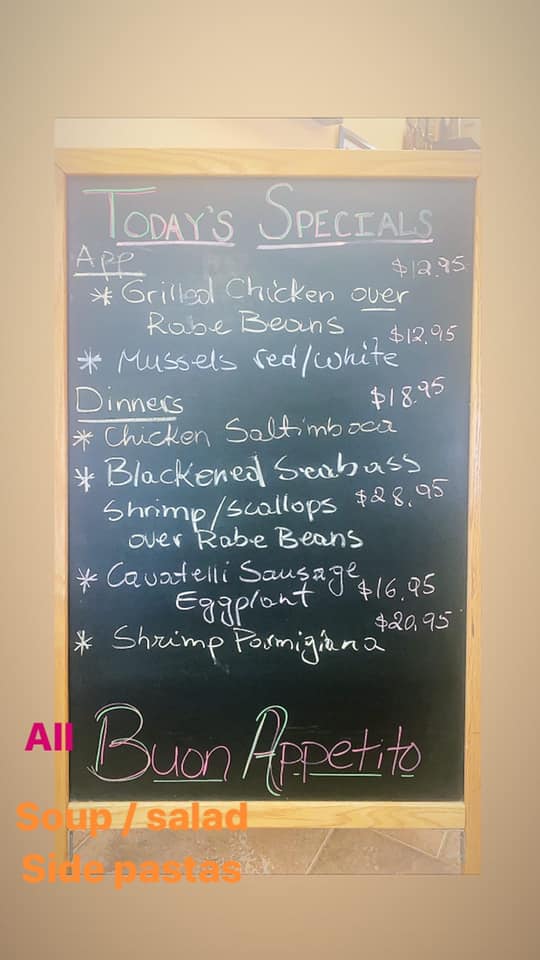 TODAY'S SPECIALS
App
$12.95
* Grilled Chicken over
Rabe Beans
$12.95
* Mussels red/white
Dinners
$18.95
* Chicken Saltimboca
* Blackened Seabass
Shrimp/scallops $28.95
over Rabe Beans
* Cavatelli Sausage
Eggplant $16.95
$20.95
* Shrimp Parmigiana
All
Buon Appetito
Soup / salad
Side pastas